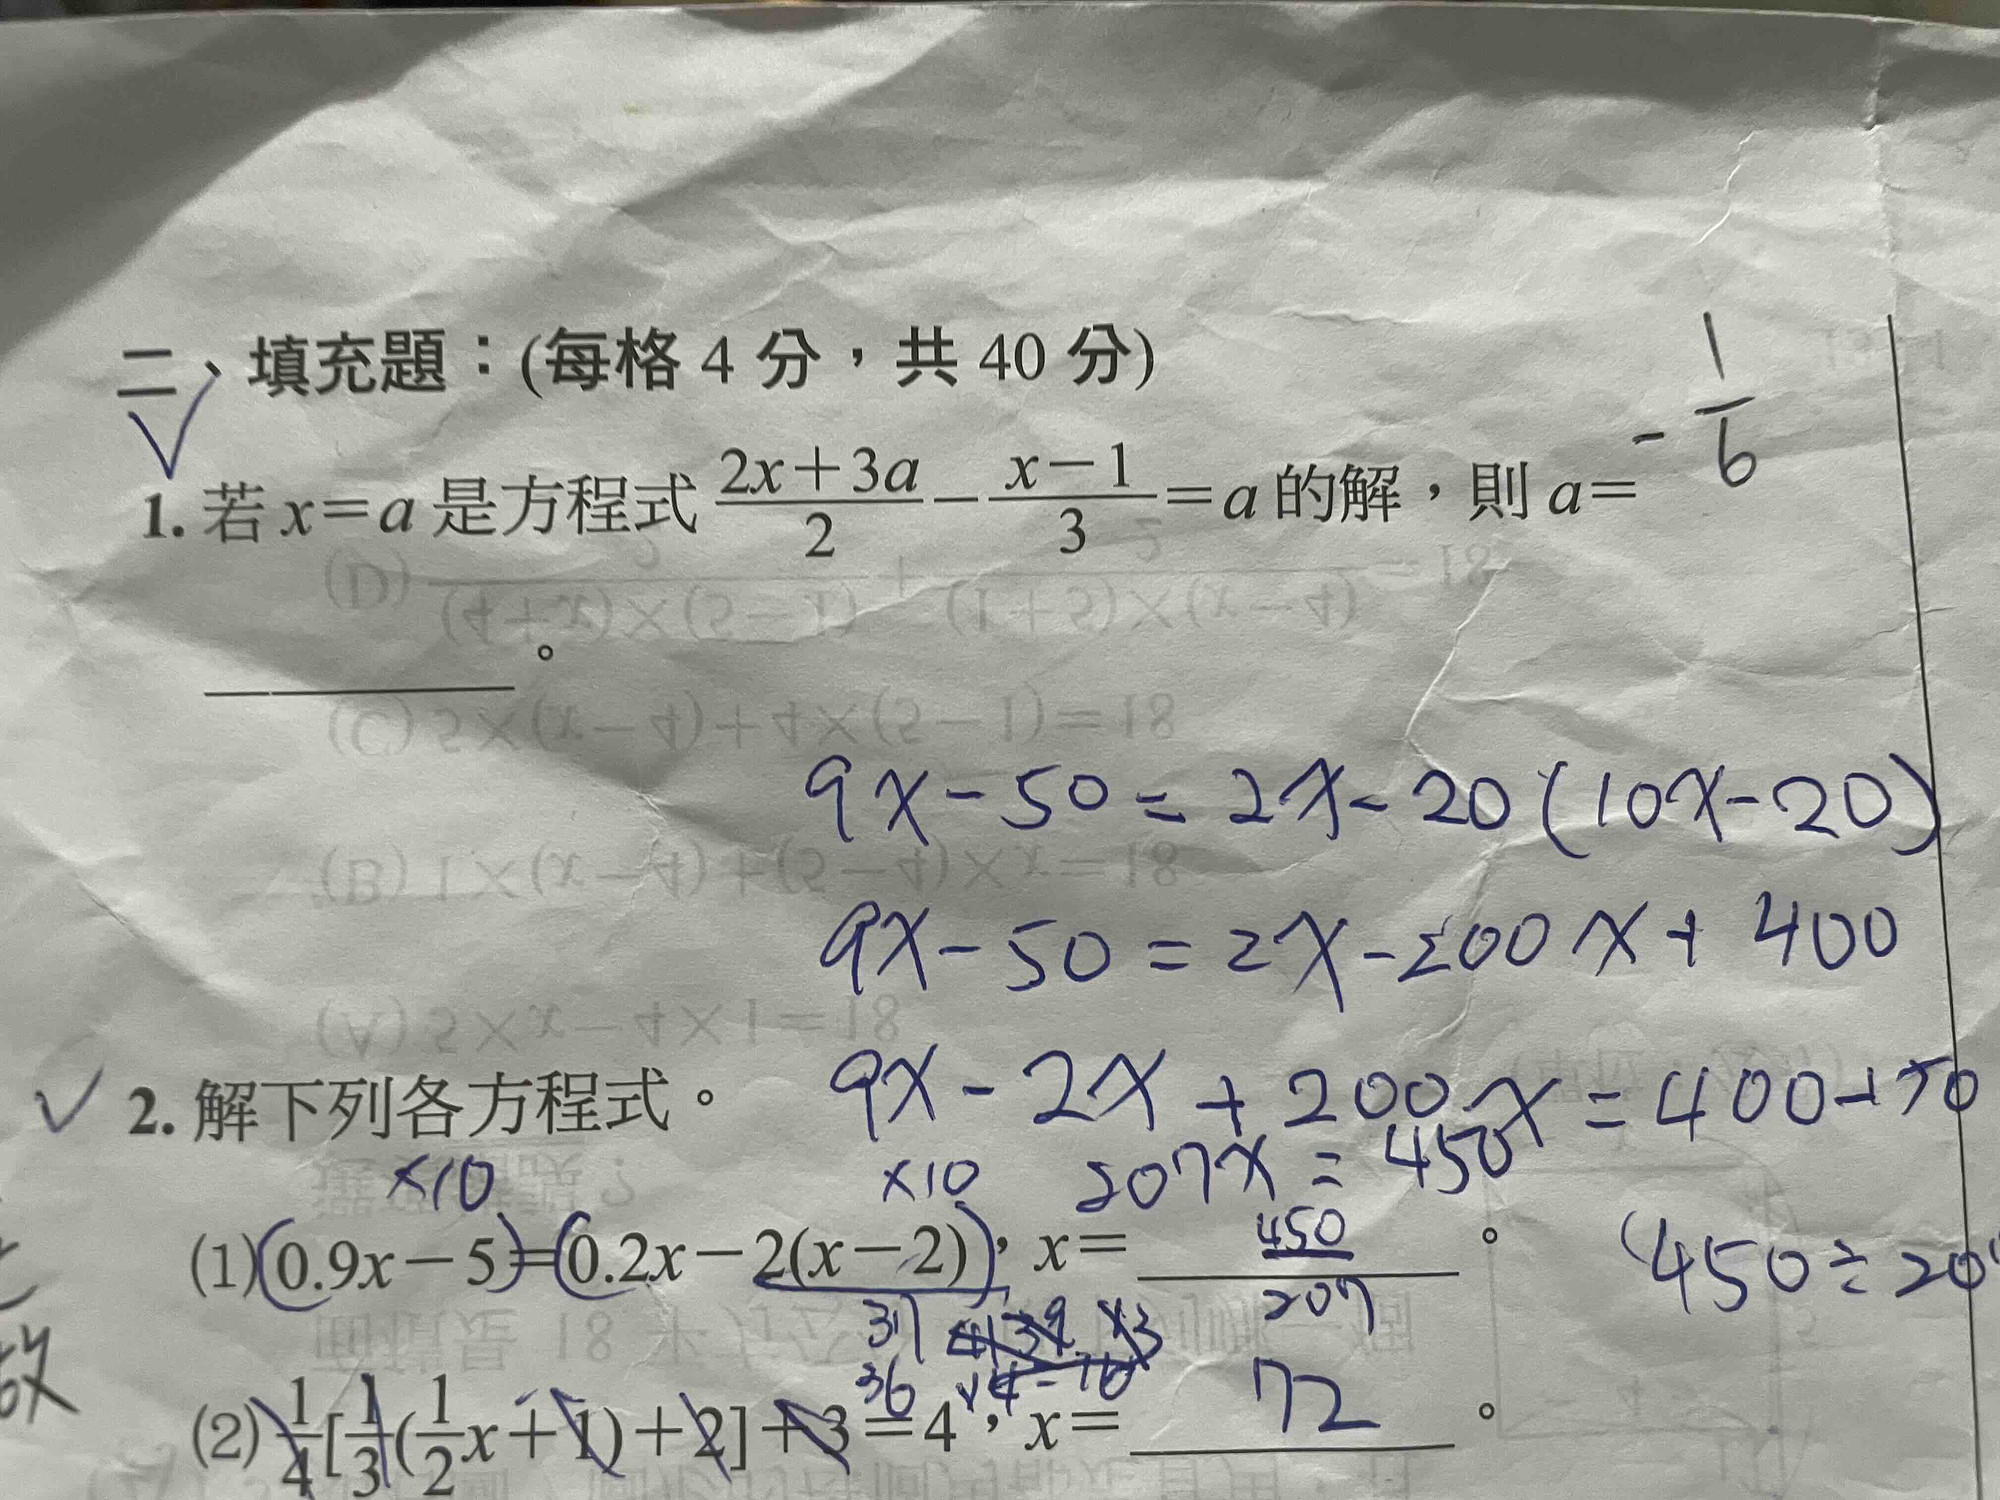 二、填充題：(每格 4 分，共 40 分)
1. 若 x=a 是方程式 (2x+3a)/2 − (x−1)/3 = a 的解，則 a= -1/6
________。
9x-50=2x-20(10x-20)
9x-50=2x-200x+400
9x-2x+200x=400+50
2. 解下列各方程式。
×10 ×10 207x=450
(1) 0.9x−5=0.2x−2(x−2)，x= 450/207 。 (450÷20
37
36
(2) 1/4[1/3(1/2x+1)+2]+3=4，x= 72 。